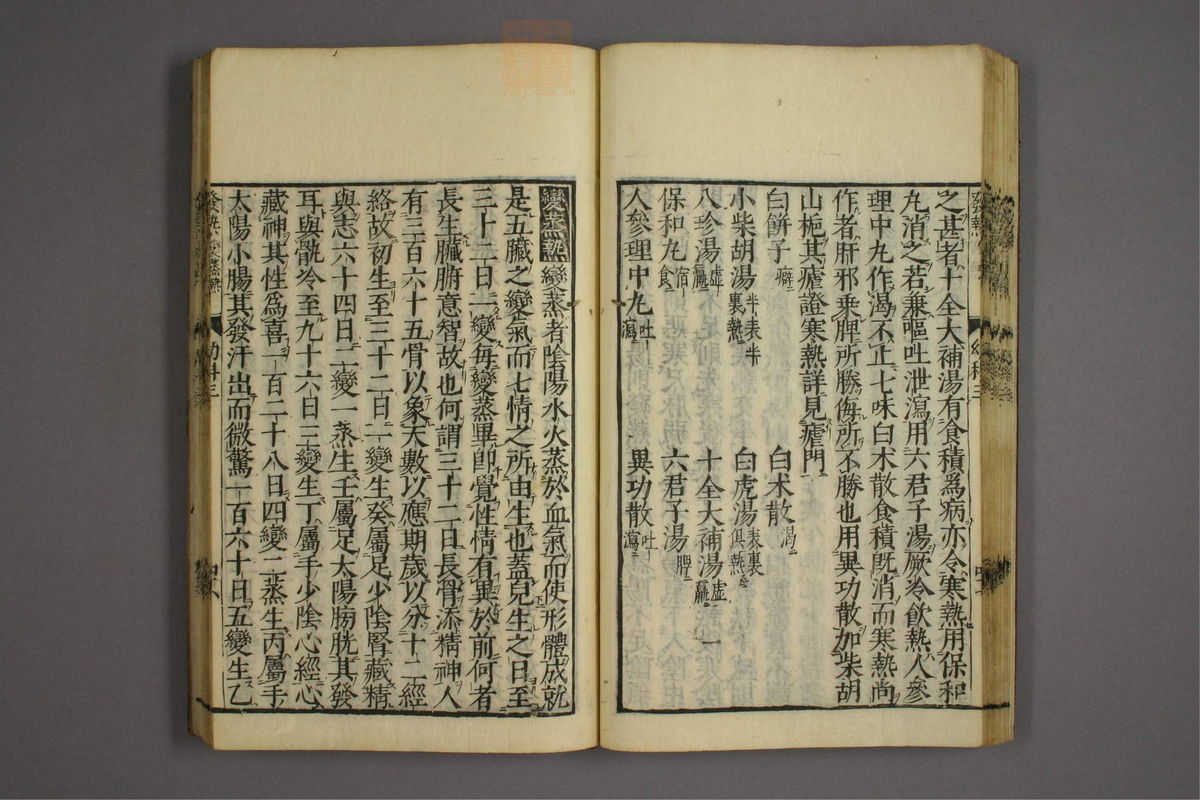 之甚者十全大補湯有食積爲病亦令寒熱用保和
丸消之若兼嘔吐泄瀉用六君子湯厥冷飲熱人參
理中丸作渴不止七味白朮散食積既消而寒熱尚
作者肝邪乘脾所勝侮所不勝也用異功散加柴胡
山梔其瘧證寒熱詳見瘧門
白餅子癖 白朮散渴
小柴胡湯半表半裏熱 白虎湯表裏俱熱
八珍湯虛羸 十全大補湯虛羸
保和丸宿食 六君子湯脾
人參理中丸吐瀉 異功散吐瀉
變蒸熱 變蒸者陰陽水火蒸於血氣而使形體成就
是五臟之變氣而七情之所由生也蓋兒生之日至
三十二日一變每變蒸畢即覺性情有異於前何者
長生臟腑意智故也何謂三十二日長骨添精神人
有三百六十五骨以象天數以應期歲以分十二經
絡故初生至三十二日一變生癸屬足少陰腎藏精
與志六十四日二變一蒸生壬屬足太陽膀胱其發
耳與骩冷至九十六日三變生丁屬手少陰心經心
藏神其性爲喜一百二十八日四變二蒸生丙屬手
太陽小腸其發汗出而微驚一百六十日五變生乙
發熱
幼科三
發熱 變蒸熱
幼科三